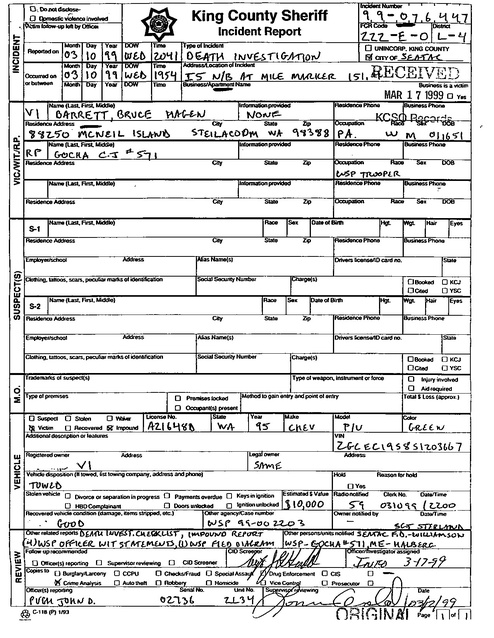 ☐ Do not disclose
☐ Domestic violence involved
Victim follow-up left by Officer
King County Sheriff
Incident Report
Incident Number
99-076,447
FCR Code
District
222-E-0
L-4
INCIDENT
Reported on
Month Day Year DOW Time
03 10 99 WED 2041
Type of Incident
DEATH INVESTIGATION
☐ UNINCORP, KING COUNTY
☑ CITY OF SEATAC
Occurred on or between
Month Day Year DOW Time
03 10 99 WED 1954
Address/Location of Incident
I5 N/B AT MILE MARKER 151.
Business/Apartment Name
RECEIVED
Business is a victim
☐ Yes
MAR 17 1999
KCSO Records
VIC/WIT/R.P.
V1
Name (Last, First, Middle)
DARRETT, BRUCE HAGEN
Information provided
NONE
Residence Phone
Business Phone
Residence Address City State Zip
88250 MCNEIL ISLAND STEILACOOM WA 98388
Occupation Race Sex DOB
P.A. W M 011651
RP
Name (Last, First, Middle)
GOCHA C.J #571
Information provided
Residence Phone
Business Phone
Residence Address City State Zip
Occupation Race Sex DOB
WSP TROOPER
Name (Last, First, Middle)
Information provided
Residence Phone
Business Phone
Residence Address City State Zip
Occupation Race Sex DOB
SUSPECT(S)
S-1
Name (Last, First, Middle) Race Sex Date of Birth Hgt. Wgt. Hair Eyes
Residence Address City State Zip Residence Phone Business Phone
Employer/school Address Alias Name(s) Drivers license/ID card no. State
Clothing, tattoos, scars, peculiar marks of identification Social Security Number Charge(s)
☐ Booked ☐ KCJ
☐ Cited ☐ YSC
S-2
Name (Last, First, Middle) Race Sex Date of Birth Hgt. Wgt. Hair Eyes
Residence Address City State Zip Residence Phone Business Phone
Employer/school Address Alias Name(s) Drivers license/ID card no. State
Clothing, tattoos, scars, peculiar marks of identification Social Security Number Charge(s)
☐ Booked ☐ KCJ
☐ Cited ☐ YSC
M.O.
Trademarks of suspect(s) Type of weapon, instrument or force
☐ Injury involved
☐ Aid required
Type of premises
☐ Premises locked
☐ Occupant(s) present
Method to gain entry and point of entry Total $ Loss (approx.)
VEHICLE
☐ Suspect ☐ Stolen ☐ Waiver
☑ Victim ☐ Recovered ☑ Impound
License No. State Year Make Model Color
A21648D WA 95 CHEV P/U GREEN
Additional description or features
VIN
2GCEC19S8S1203667
Registered owner
V1
Legal owner
SAME
Vehicle disposition (if towed, list towing company, address and phone)
TOWED
Hold
☐ Yes
Reason for hold
Stolen vehicle
☐ Divorce or separation in progress ☐ Payments overdue ☐ Keys in ignition
☐ HBD Complainant ☐ Doors unlocked ☐ Ignition unlocked
Estimated $ Value
$10,000
Radio notified Clerk No. Date/Time
59 031099 2200
Recovered vehicle condition (damage, items stripped, etc.)
GOOD
Other agency/Case number
WSP 99-002203
Owner notified by Date/Time
SGT STIRLAND
REVIEW
Other related reports: DEATH INVEST. CHECKLIST, IMPOUND REPORT,
(4) WSP OFFICER WIT STATEMENTS, (1) WSP FIELD DIAGRAM
Other persons/units notified SEATAC F.D.-WILLIAMSON
WSP-GOCHA #571, ME-HALBERG
Follow up recommended
☐ Officer(s) reporting ☐ Supervisor reviewing ☐ CID Screener
CID Screener
Officer/Investigator assigned
INFO 3-17-99
Copies to
☐ Burglary/Larceny ☐ CCPU ☐ Checks/Fraud ☐ Special Assault ☐ Drug Enforcement ☐ CIS
☑ Crime Analysis ☐ Auto theft ☐ Robbery ☐ Homicide ☐ Vice Control ☐ Prosecutor
Officer(s) reporting
PUGH JOHN D. 02736 2L34
Supervisor reviewing
Date
C-118 (P) 1/93
ORIGINAL
Page 1 of 1